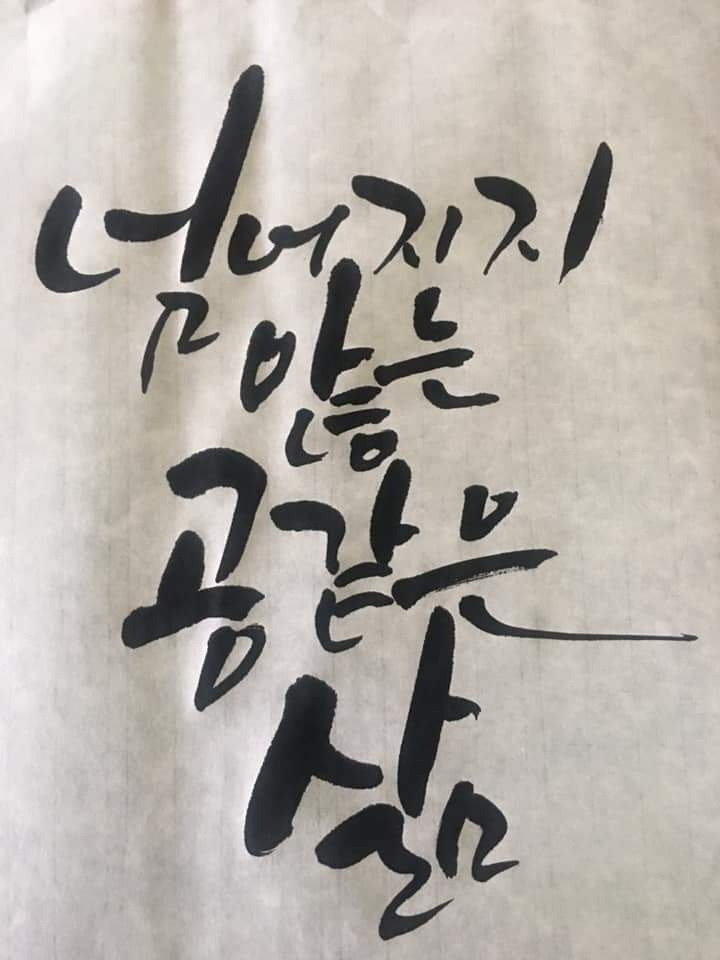 넘어지지
않는
공같은
삶